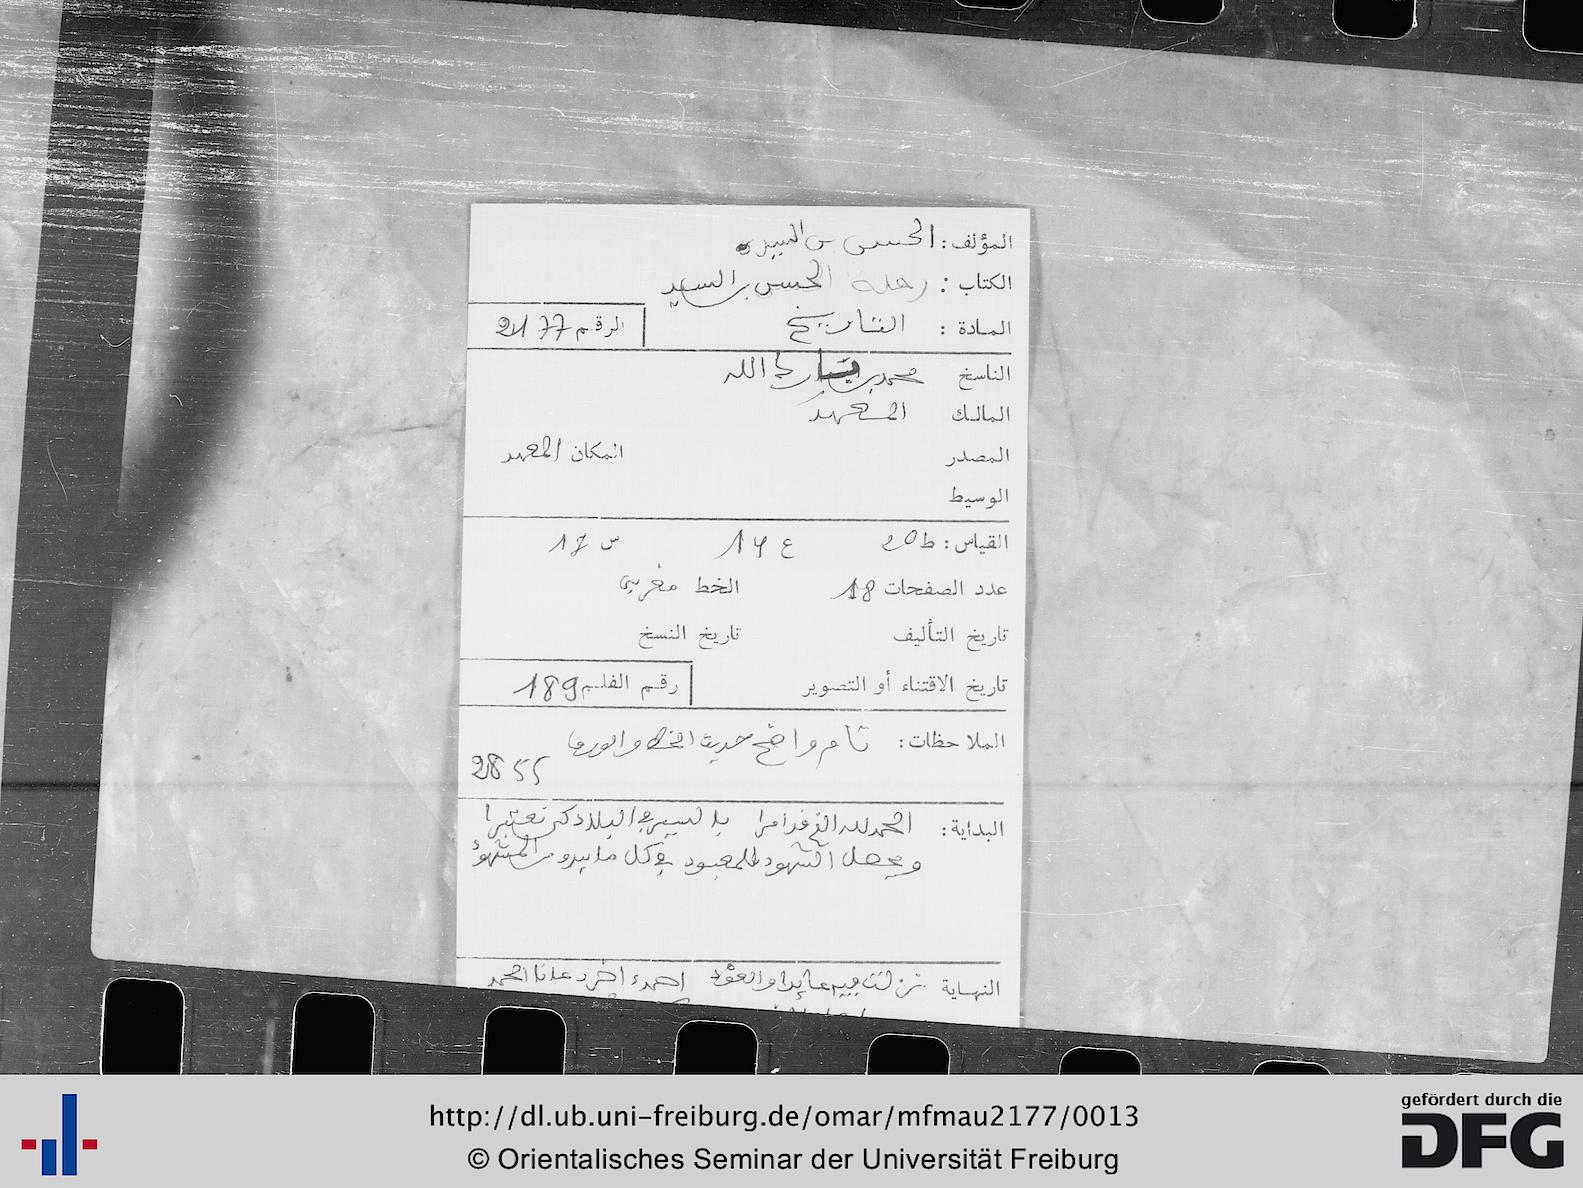 المؤلف: الحسن بن السيد
الكتاب: رحلة الحسن بن السيد
المادة: التاريخ
الرقم 2177
الناسخ محمد بن الله
المالك المعهد
المصدر المكان المعهد
الوسيط
القياس: ط 20 ع 14 س 17
عدد الصفحات 18 الخط مغربي
تاريخ التأليف تاريخ النسخ
تاريخ الاقتناء أو التصوير
رقم الفلم 189
الملاحظات: تام واضح حديث الخط والورق
2855
البداية: الحمد لله الذي قد امرا بالسير في البلاد كي نعتبرا
وجعل الشهود للمعبود في كل ما يبدو من المشهود
النهاية
http://dl.ub.uni-freiburg.de/omar/mfmau2177/0013
© Orientalisches Seminar der Universität Freiburg
gefördert durch die
DFG